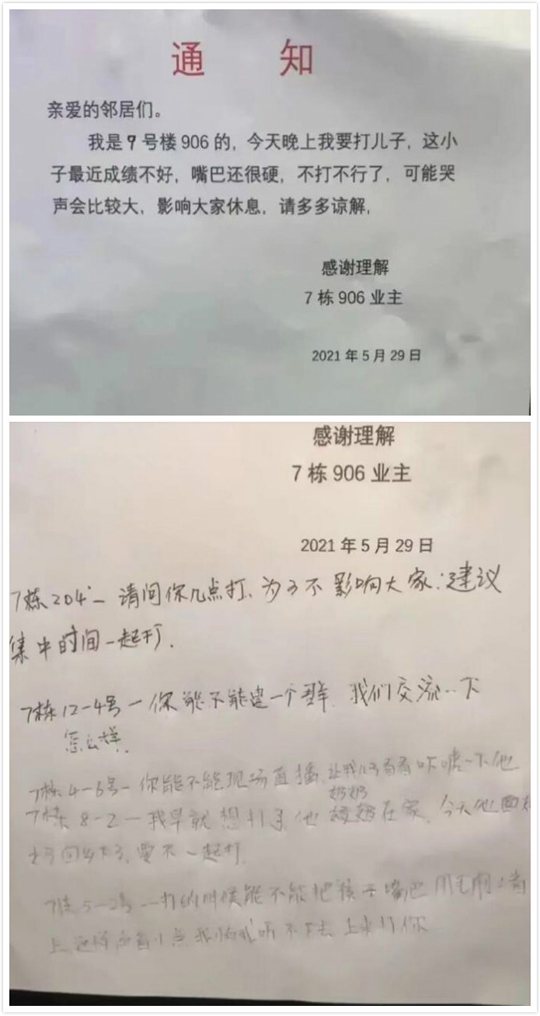 通 知
亲爱的邻居们。
我是 7 号楼 906 的，今天晚上我要打儿子，这小
子最近成绩不好，嘴巴还很硬，不打不行了，可能哭
声会比较大，影响大家休息，请多多谅解，
感谢理解
7 栋 906 业主
2021 年 5 月 29 日
感谢理解
7 栋 906 业主
2021 年 5 月 29 日
7栋204 — 请问你几点打、为了不影响大家：建议
集中时间一起打.
7栋12-4号 — 你能不能建一个群 我们交流一下
怎么样.
7栋4-6号 — 你能不能现场直播 让我儿子看看 吓唬一下他
7栋8-2 — 我早就想打了 他奶奶在家 今天他
要不一起打
7栋5-2号 — 打的时候能不能把孩子嘴巴用毛
上 这样声音小点 我怕我听不下去 上来打你